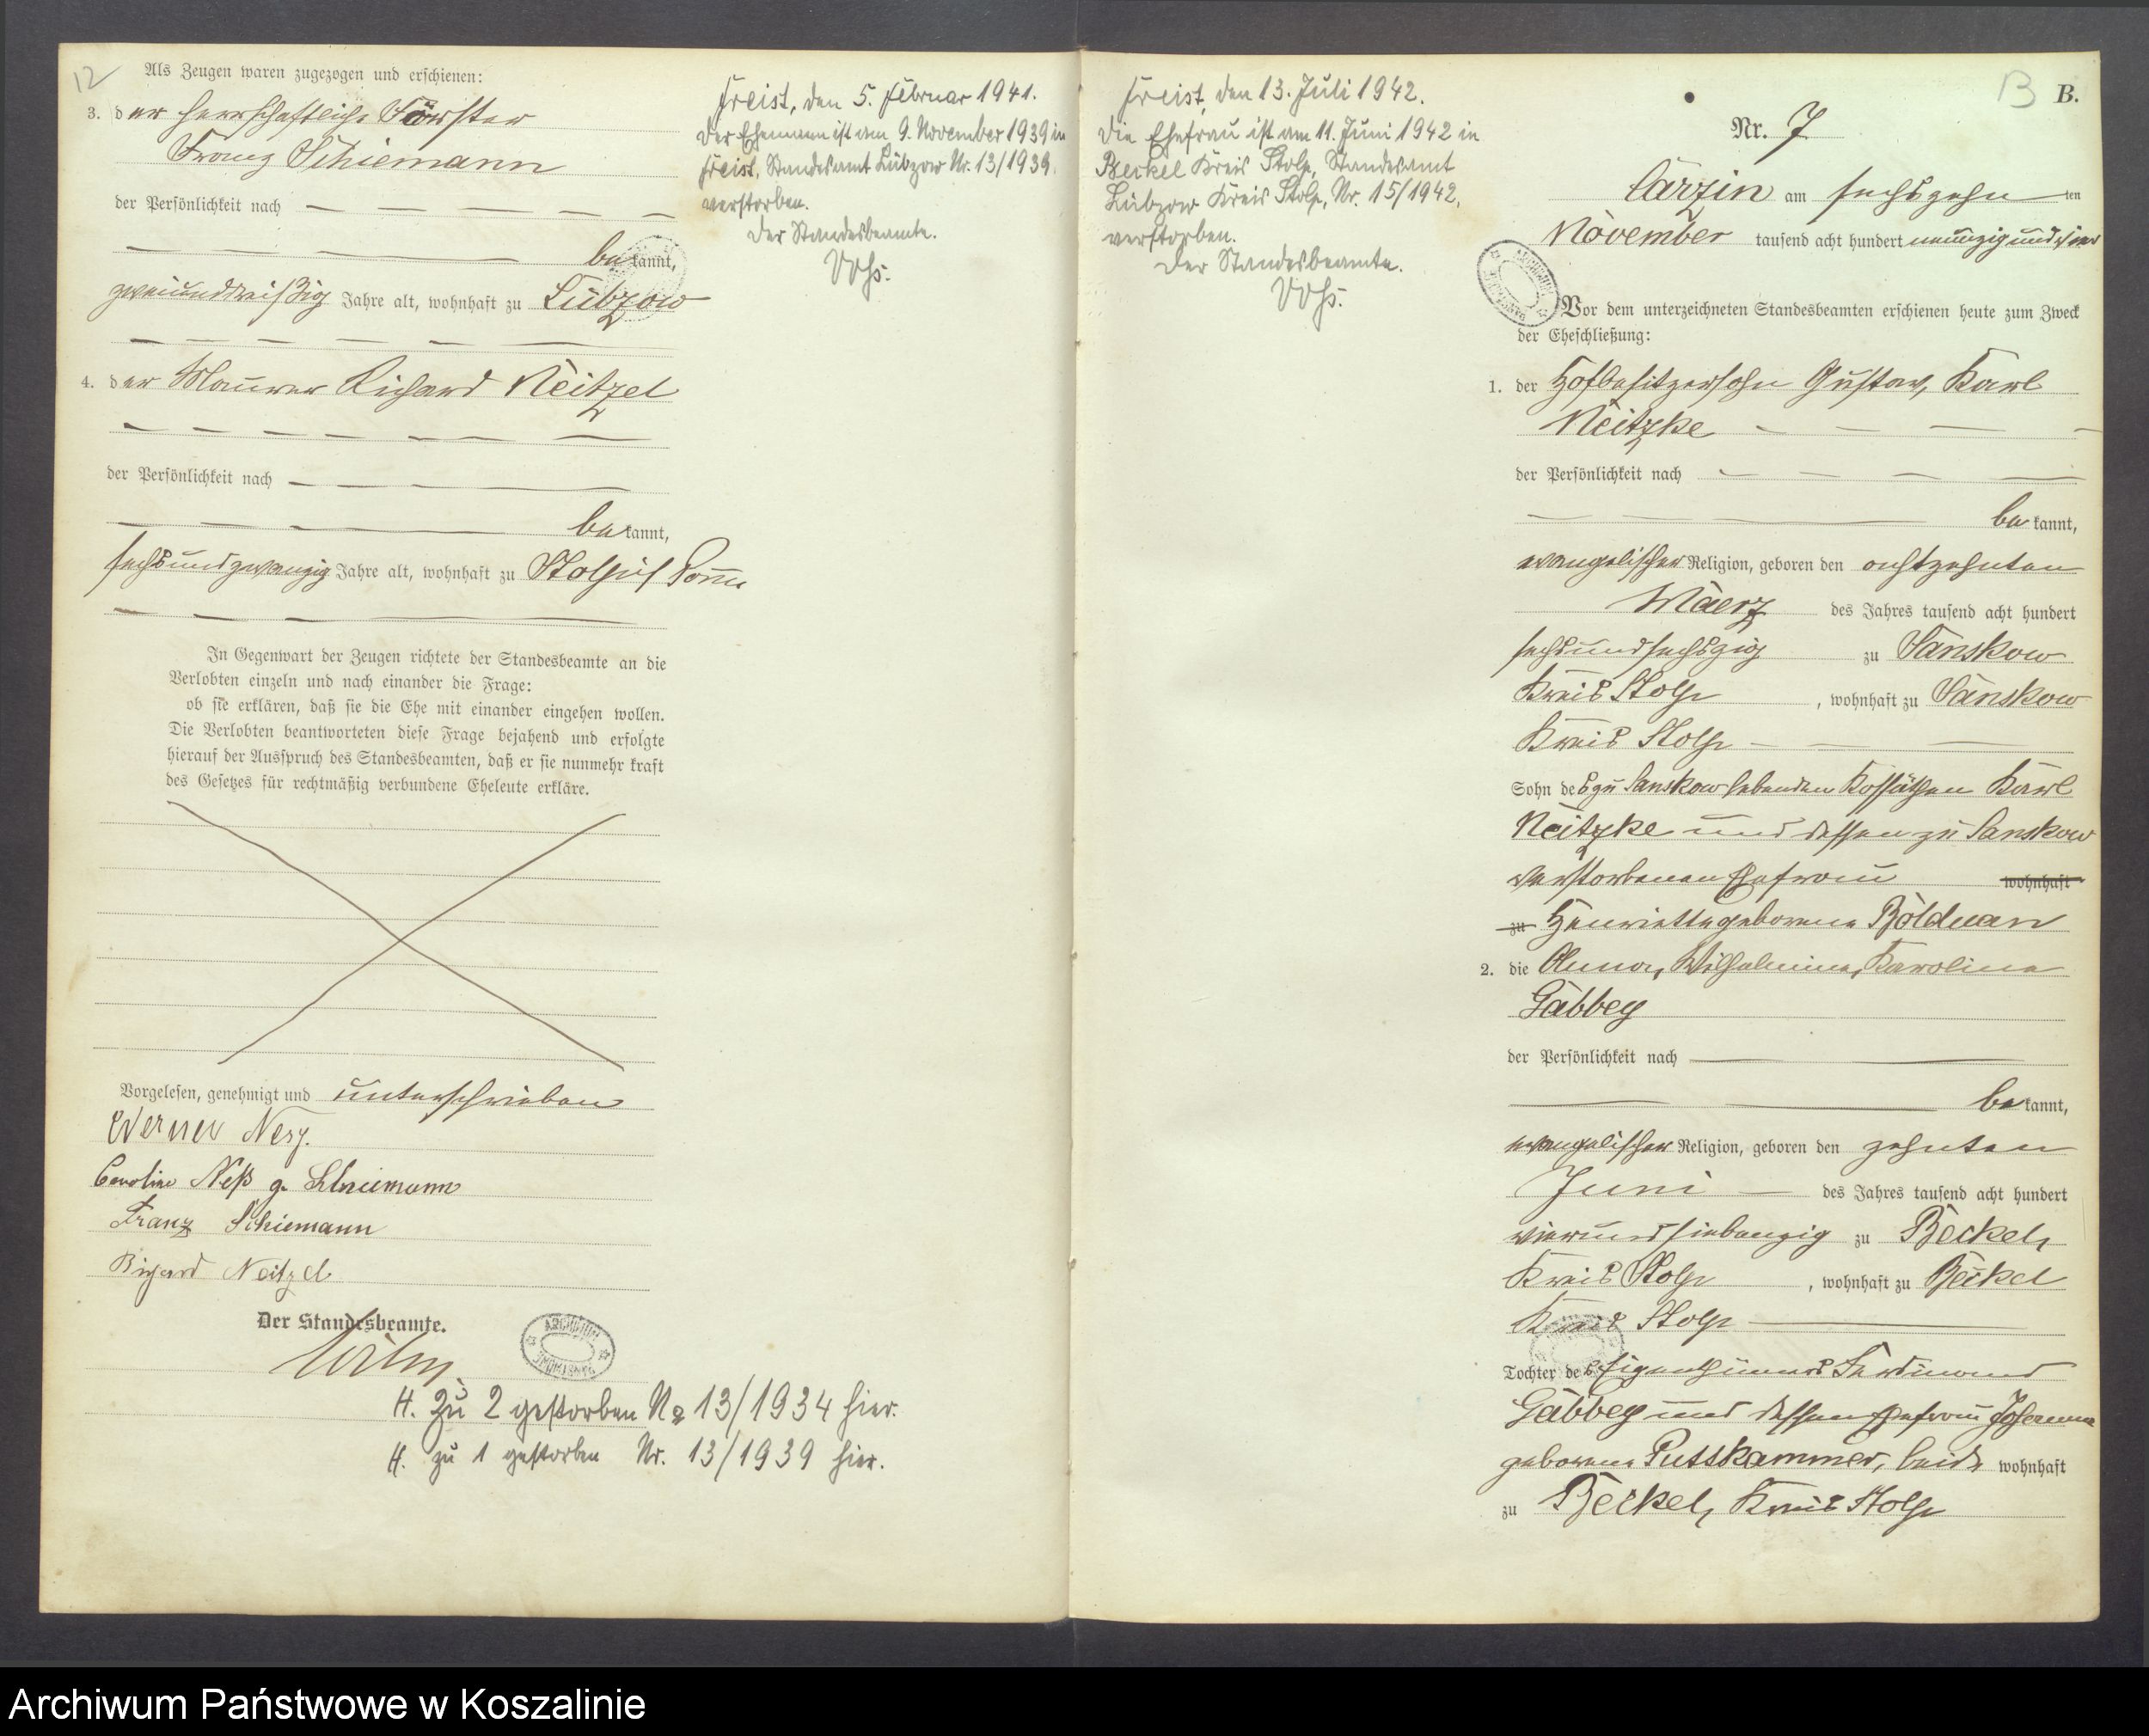 12
Als Zeugen waren zugezogen und erschienen:
3. der herrschaftliche Förster
Franz Schiemann
der Persönlichkeit nach — — — — —
— — — bekannt,
zweiunddreißig Jahre alt, wohnhaft zu Lübzow
4. der Maurer Richard Neitzel
der Persönlichkeit nach — — —
— — — bekannt,
sechsundzwanzig Jahre alt, wohnhaft zu Stolp i/ Pomm
In Gegenwart der Zeugen richtete der Standesbeamte an die
Verlobten einzeln und nach einander die Frage:
ob sie erklären, daß sie die Ehe mit einander eingehen wollen.
Die Verlobten beantworteten diese Frage bejahend und erfolgte
hierauf der Ausspruch des Standesbeamten, daß er sie nunmehr kraft
des Gesetzes für rechtmäßig verbundene Eheleute erkläre.
Vorgelesen, genehmigt und unterschrieben
Werner
Caroline Neß g. Schiemann
Franz Schiemann
Richard Neitzel
Der Standesbeamte.
ARCHIWUM
H. Zu 2 gestorben No 13/1934 hier.
H. zu 1 gestorben Nr. 13/1939 hier.
Freist, den 5. Februar 1941.
Der Ehemann ist am 9. November 1939 in
Freist, Standesamt Lübzow Nr. 13/1939.
verstorben.
Der Standesbeamte.
Freist, den 13. Juli 1942.
Die Ehefrau ist am 11. Juni 1942 in
Beckel Kreis Stolp, Standesamt
Lübzow Kreis Stolp, Nr. 15/1942,
verstorben.
Der Standesbeamte.
13 B.
Nr. 7
Carzin am sechszehn ten
November tausend acht hundert neunzig und vier
Vor dem unterzeichneten Standesbeamten erschienen heute zum Zweck
der Eheschließung:
1. der Hofbesitzersohn Gustav, Karl
Neitzke — — — —
der Persönlichkeit nach — — — —
— — — bekannt,
evangelischer Religion, geboren den achtzehnten
Maerz des Jahres tausend acht hundert
sechsundsechszig zu Sanskow
Kreis Stolp, wohnhaft zu Sanskow
Kreis Stolp — — —
Sohn des zu Sanskow lebenden Kossäthen Karl
Neitzke und dessen zu Sanskow
verstorbenen Ehefrau wohnhaft
zu Henriette geborene Bolduan
2. die Anna, Wilhelmine, Karoline
Gabbey
der Persönlichkeit nach —
— — bekannt,
evangelischer Religion, geboren den zehnten
Juni — des Jahres tausend acht hundert
vierundsiebenzig zu Beckel,
Kreis Stolp, wohnhaft zu Beckel
Kreis Stolp —
Tochter des Eigenthümers Ferdinand
Gabbey und dessen Ehefrau Johanna
geborene Puttkammer, beide wohnhaft
zu Beckel, Kreis Stolp
Archiwum Państwowe w Koszalinie